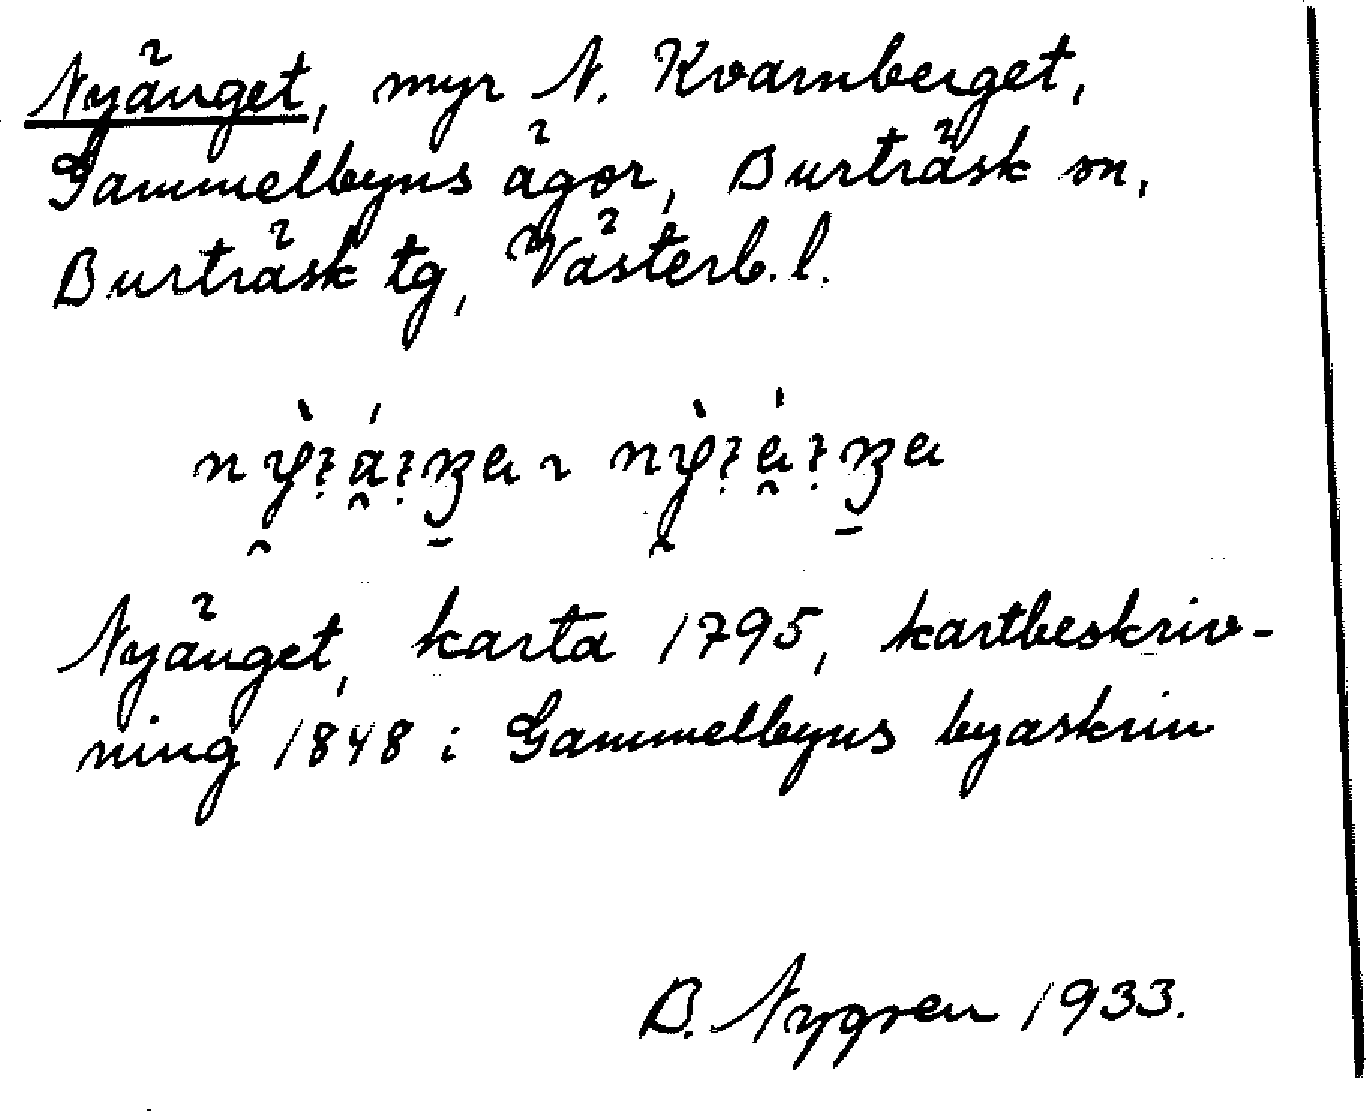 Nyänget, myr N. Kvarnberget,
Gammelbyns ägor, Burträsk sn,
Burträsk tg, Västerb. l.
Nyänget, karta 1795, kartbeskriv-
ning 1848 i Gammelbyns byaskrin
B. Nygren 1933.